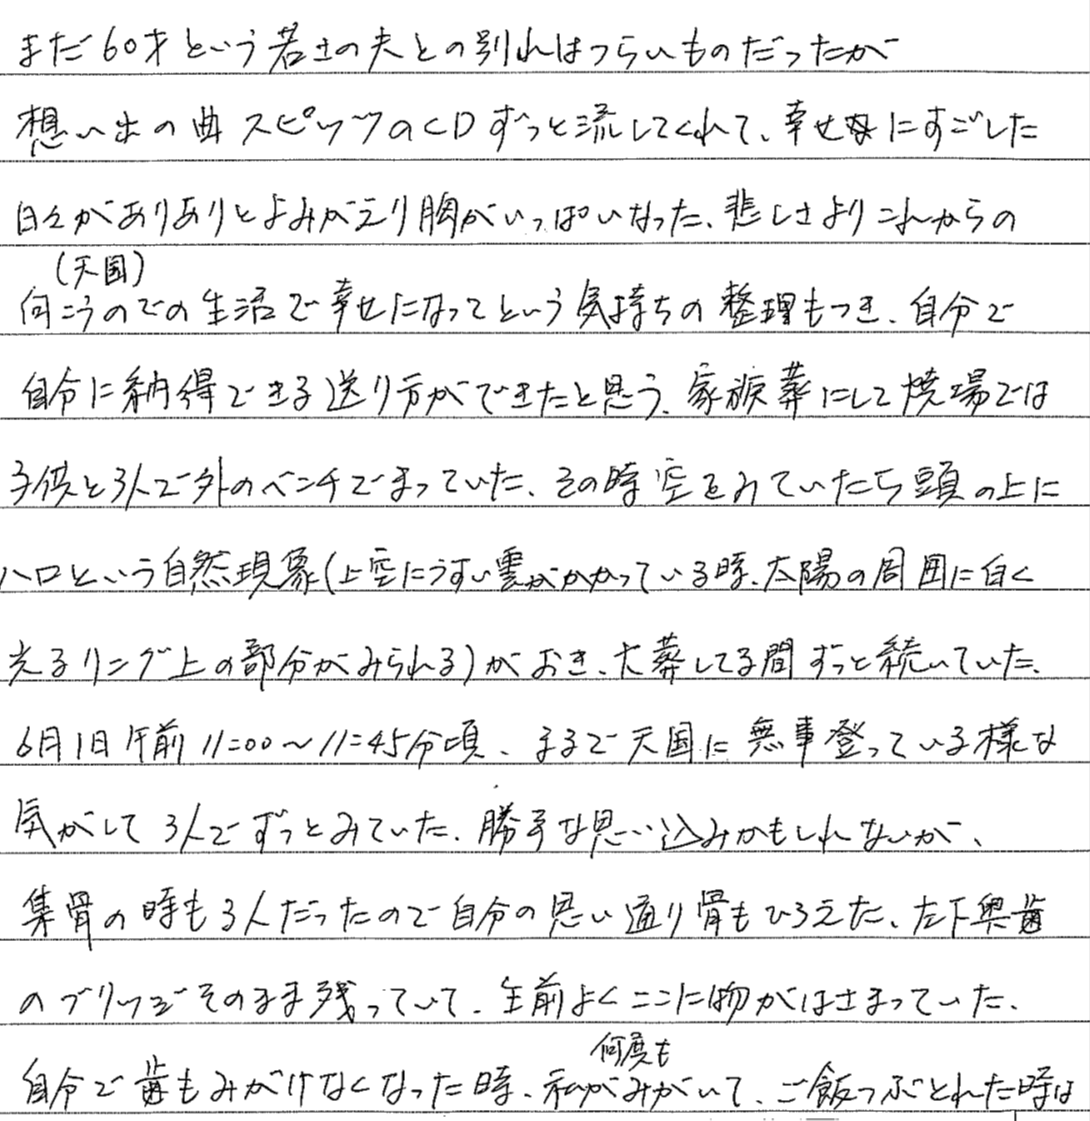 まだ60才という若さの夫との別れはつらいものだったが
想い出の曲スピッツのCDずっと流してくれて、幸せにすごした
日々がありありとよみがえり胸がいっぱいなった、悲しさよりこれからの
(天国)
向こうのでの生活で幸せになってという気持ちの整理もつき、自分で
自分に納得できる送り方ができたと思う、家族葬にして焼場では
子供と3人で外のベンチでまっていた、その時空をみていたら頭の上に
ハロという自然現象(上空にうすい雲がかかっている時、太陽の周囲に白く
光るリング上の部分がみられる)がおき、火葬してる間ずっと続いていた、
6月1日午前11:00〜11:45分頃、まるで天国に無事登っている様な
気がして3人でずっとみていた、勝手な思い込みかもしれないが、
集骨の時も3人だったので自分の思い通り骨もひろえた、左下奥歯
のブリッジそのまま残っていて、生前よくここに物がはさまっていた、
何度も
自分で歯もみがけなくなった時、私がみがいて、ご飯つぶとれた時は